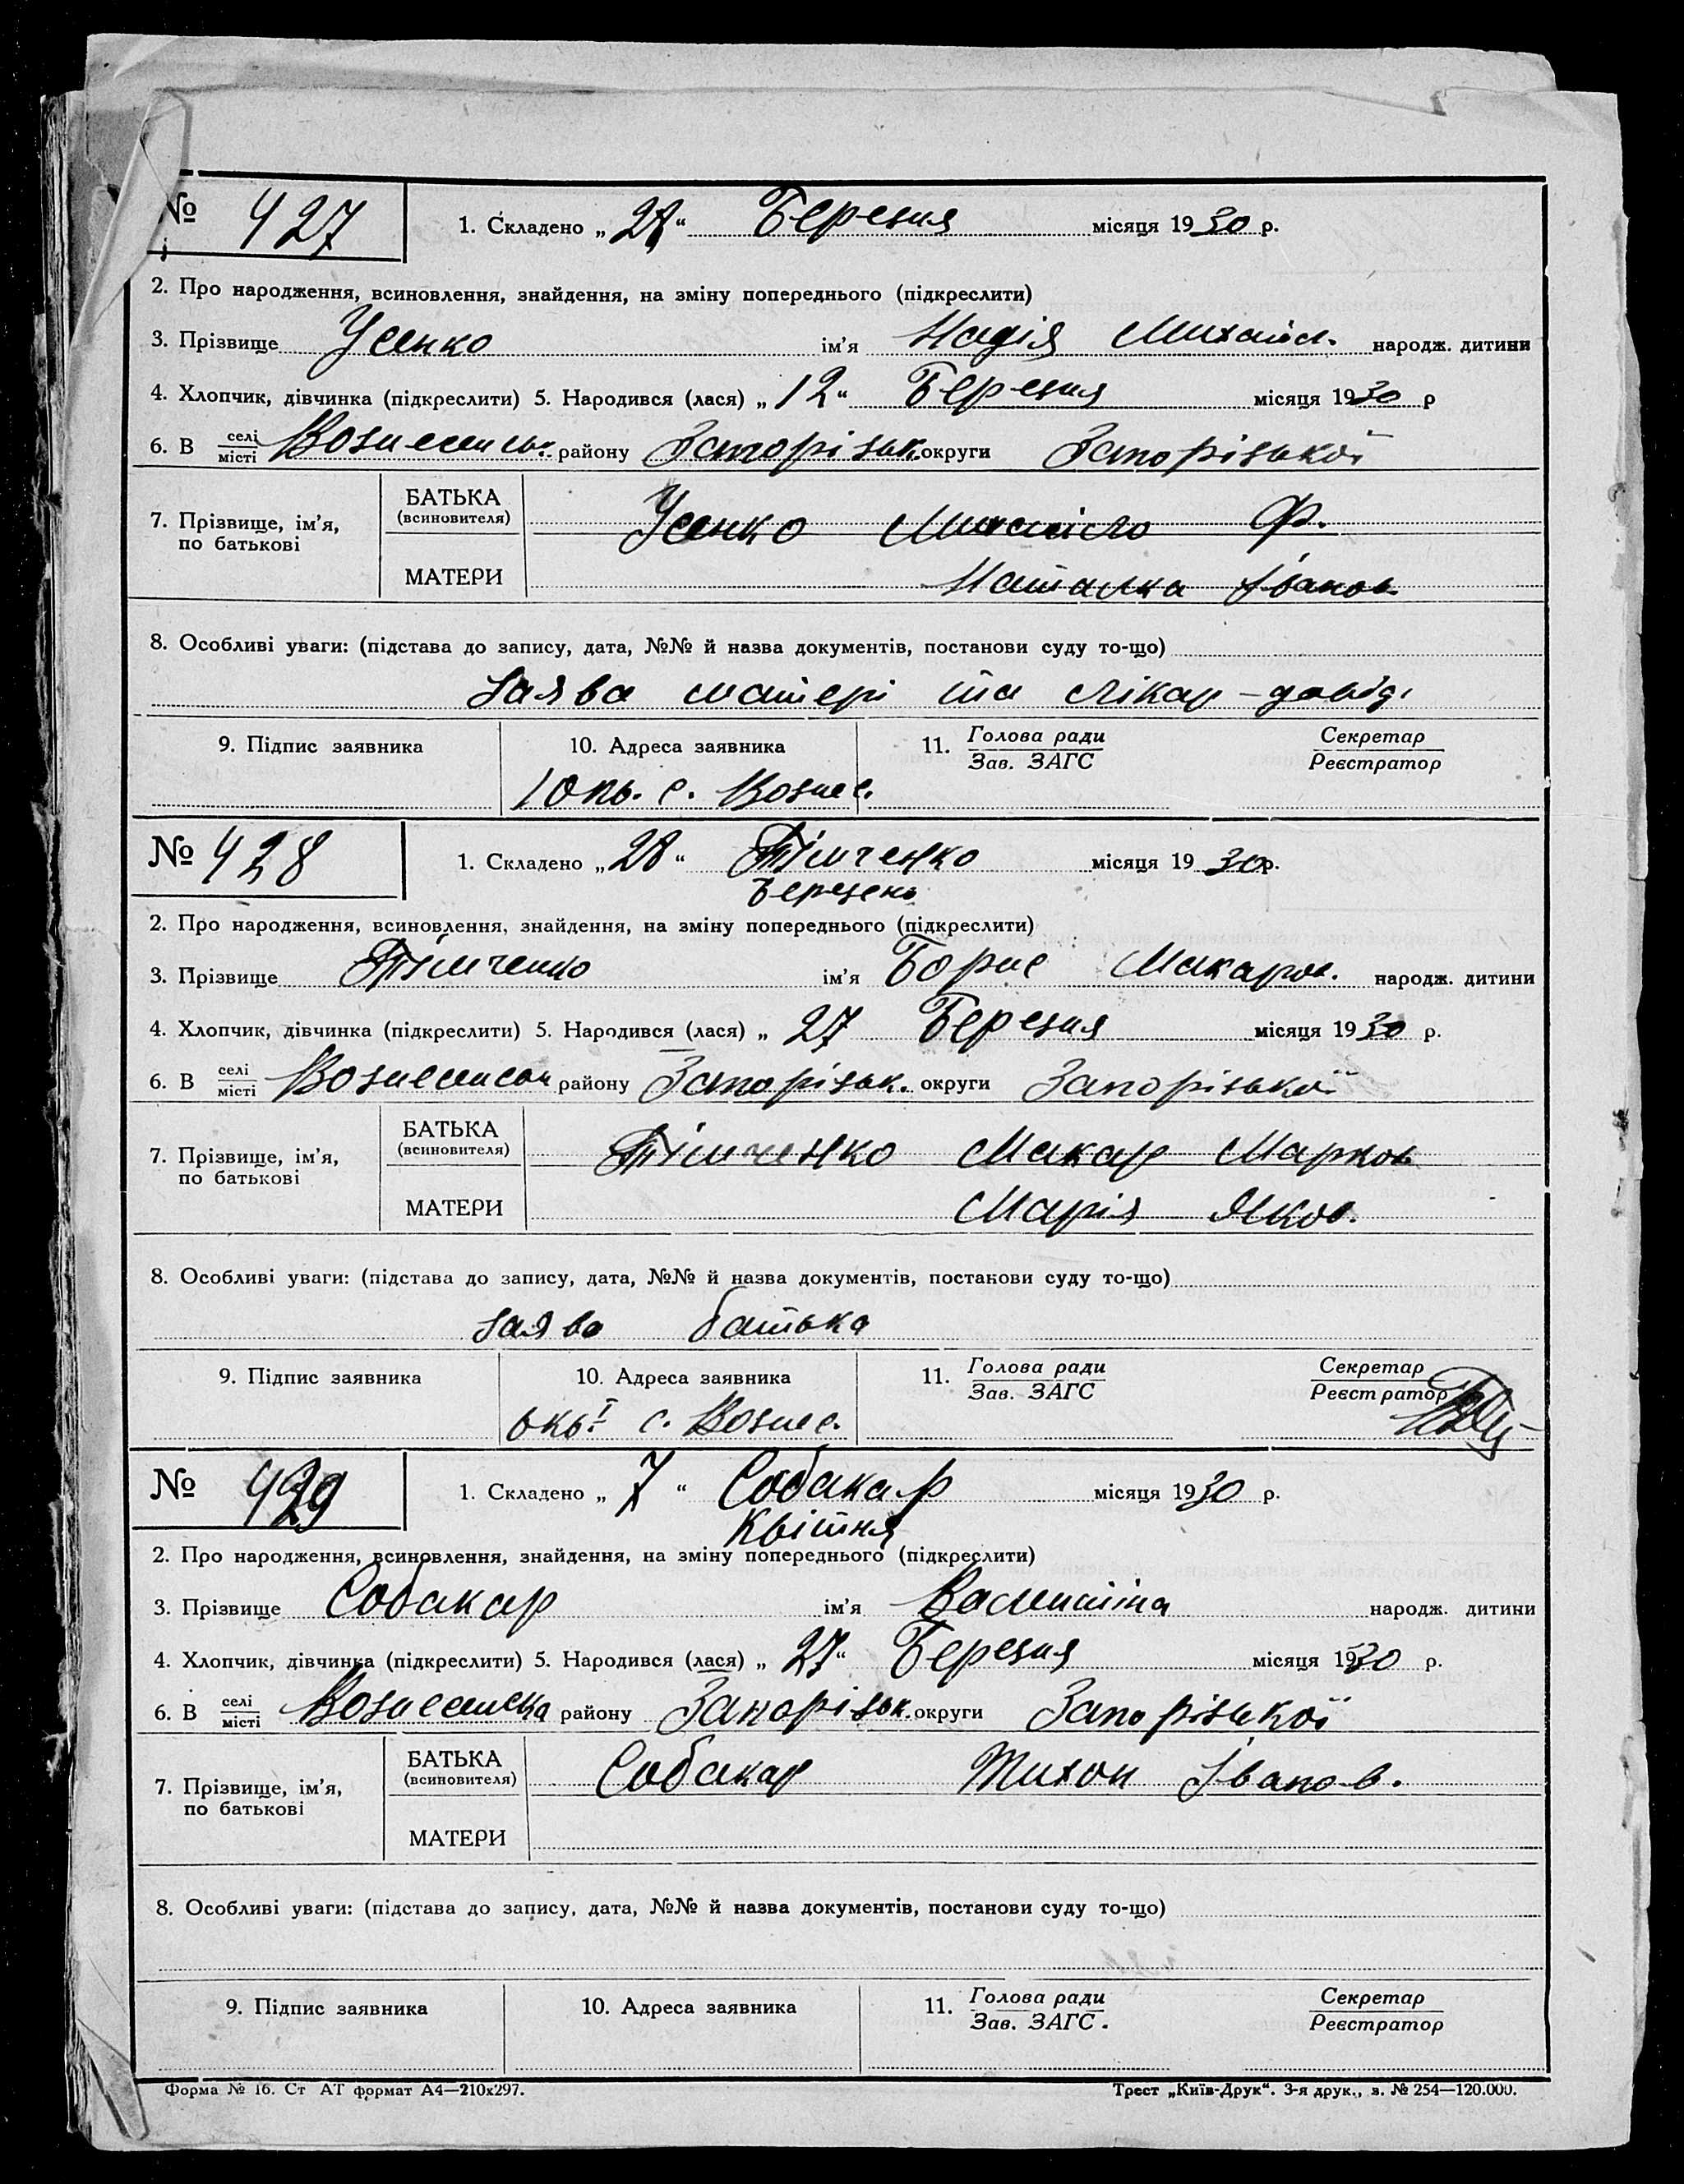 № 427 1. Складено „28“ Березня місяця 1930 р.
2. Про народження, всиновлення, знайдення, на зміну попереднього (підкреслити)
3. Прізвище Усенко ім'я Надія Михайл. народж. дитини
4. Хлопчик, дівчинка (підкреслити) 5. Народився (лася) „12“ Березня місяця 1930 р
6. В селі місті Вознесенськ. району Запорізьк. округи Запорізької
7. Прізвище, ім'я, по батькові
БАТЬКА (всиновителя) Усенко Михайло Ф.
МАТЕРИ Наталка Іванов.
8. Особливі уваги: (підстава до запису, дата, №№ й назва документів, постанови суду то-що)
Заява матері та лікар-довід.
9. Підпис заявника 10. Адреса заявника 11. Голова ради Зав. ЗАГС Секретар Реєстратор
1 окв. с. Вознес.
№ 428 1. Складено „28“ Тімченко місяця 1930 р.
Березень
2. Про народження, всиновлення, знайдення, на зміну попереднього (підкреслити)
3. Прізвище Тімченко ім'я Борис Макаров. народж. дитини
4. Хлопчик, дівчинка (підкреслити) 5. Народився (лася) „27 Березня місяця 1930 р.
6. В селі місті району Запорізьк. округи Запорізької
7. Прізвище, ім'я, по батькові
БАТЬКА (всиновителя) Тімченко Макар Марков
МАТЕРИ Марія Яков.
8. Особливі уваги: (підстава до запису, дата, №№ й назва документів, постанови суду то-що)
Заява батька
9. Підпис заявника 10. Адреса заявника 11. Голова ради Зав. ЗАГС Секретар Реєстратор
окв. I с. Вознес.
№ 429 1. Складено „7“ Собакар місяця 1930 р.
Квітня
2. Про народження, всиновлення, знайдення, на зміну попереднього (підкреслити)
3. Прізвище Собакар ім'я Валентіна народж. дитини
4. Хлопчик, дівчинка (підкреслити) 5. Народився (лася) „27“ Березня місяця 1930 р.
6. В селі місті Вознесенска району Запорізьк. округи Запорізької
7. Прізвище, ім'я, по батькові
БАТЬКА (всиновителя) Собакар Тихон Іванов.
МАТЕРИ
8. Особливі уваги: (підстава до запису, дата, №№ й назва документів, постанови суду то-що)
9. Підпис заявника 10. Адреса заявника 11. Голова ради Зав. ЗАГС. Секретар Реєстратор
Форма № 16. Ст АТ формат А4—210х297. Трест „Київ-Друк“. 3-я друк., з. № 254—120.000.